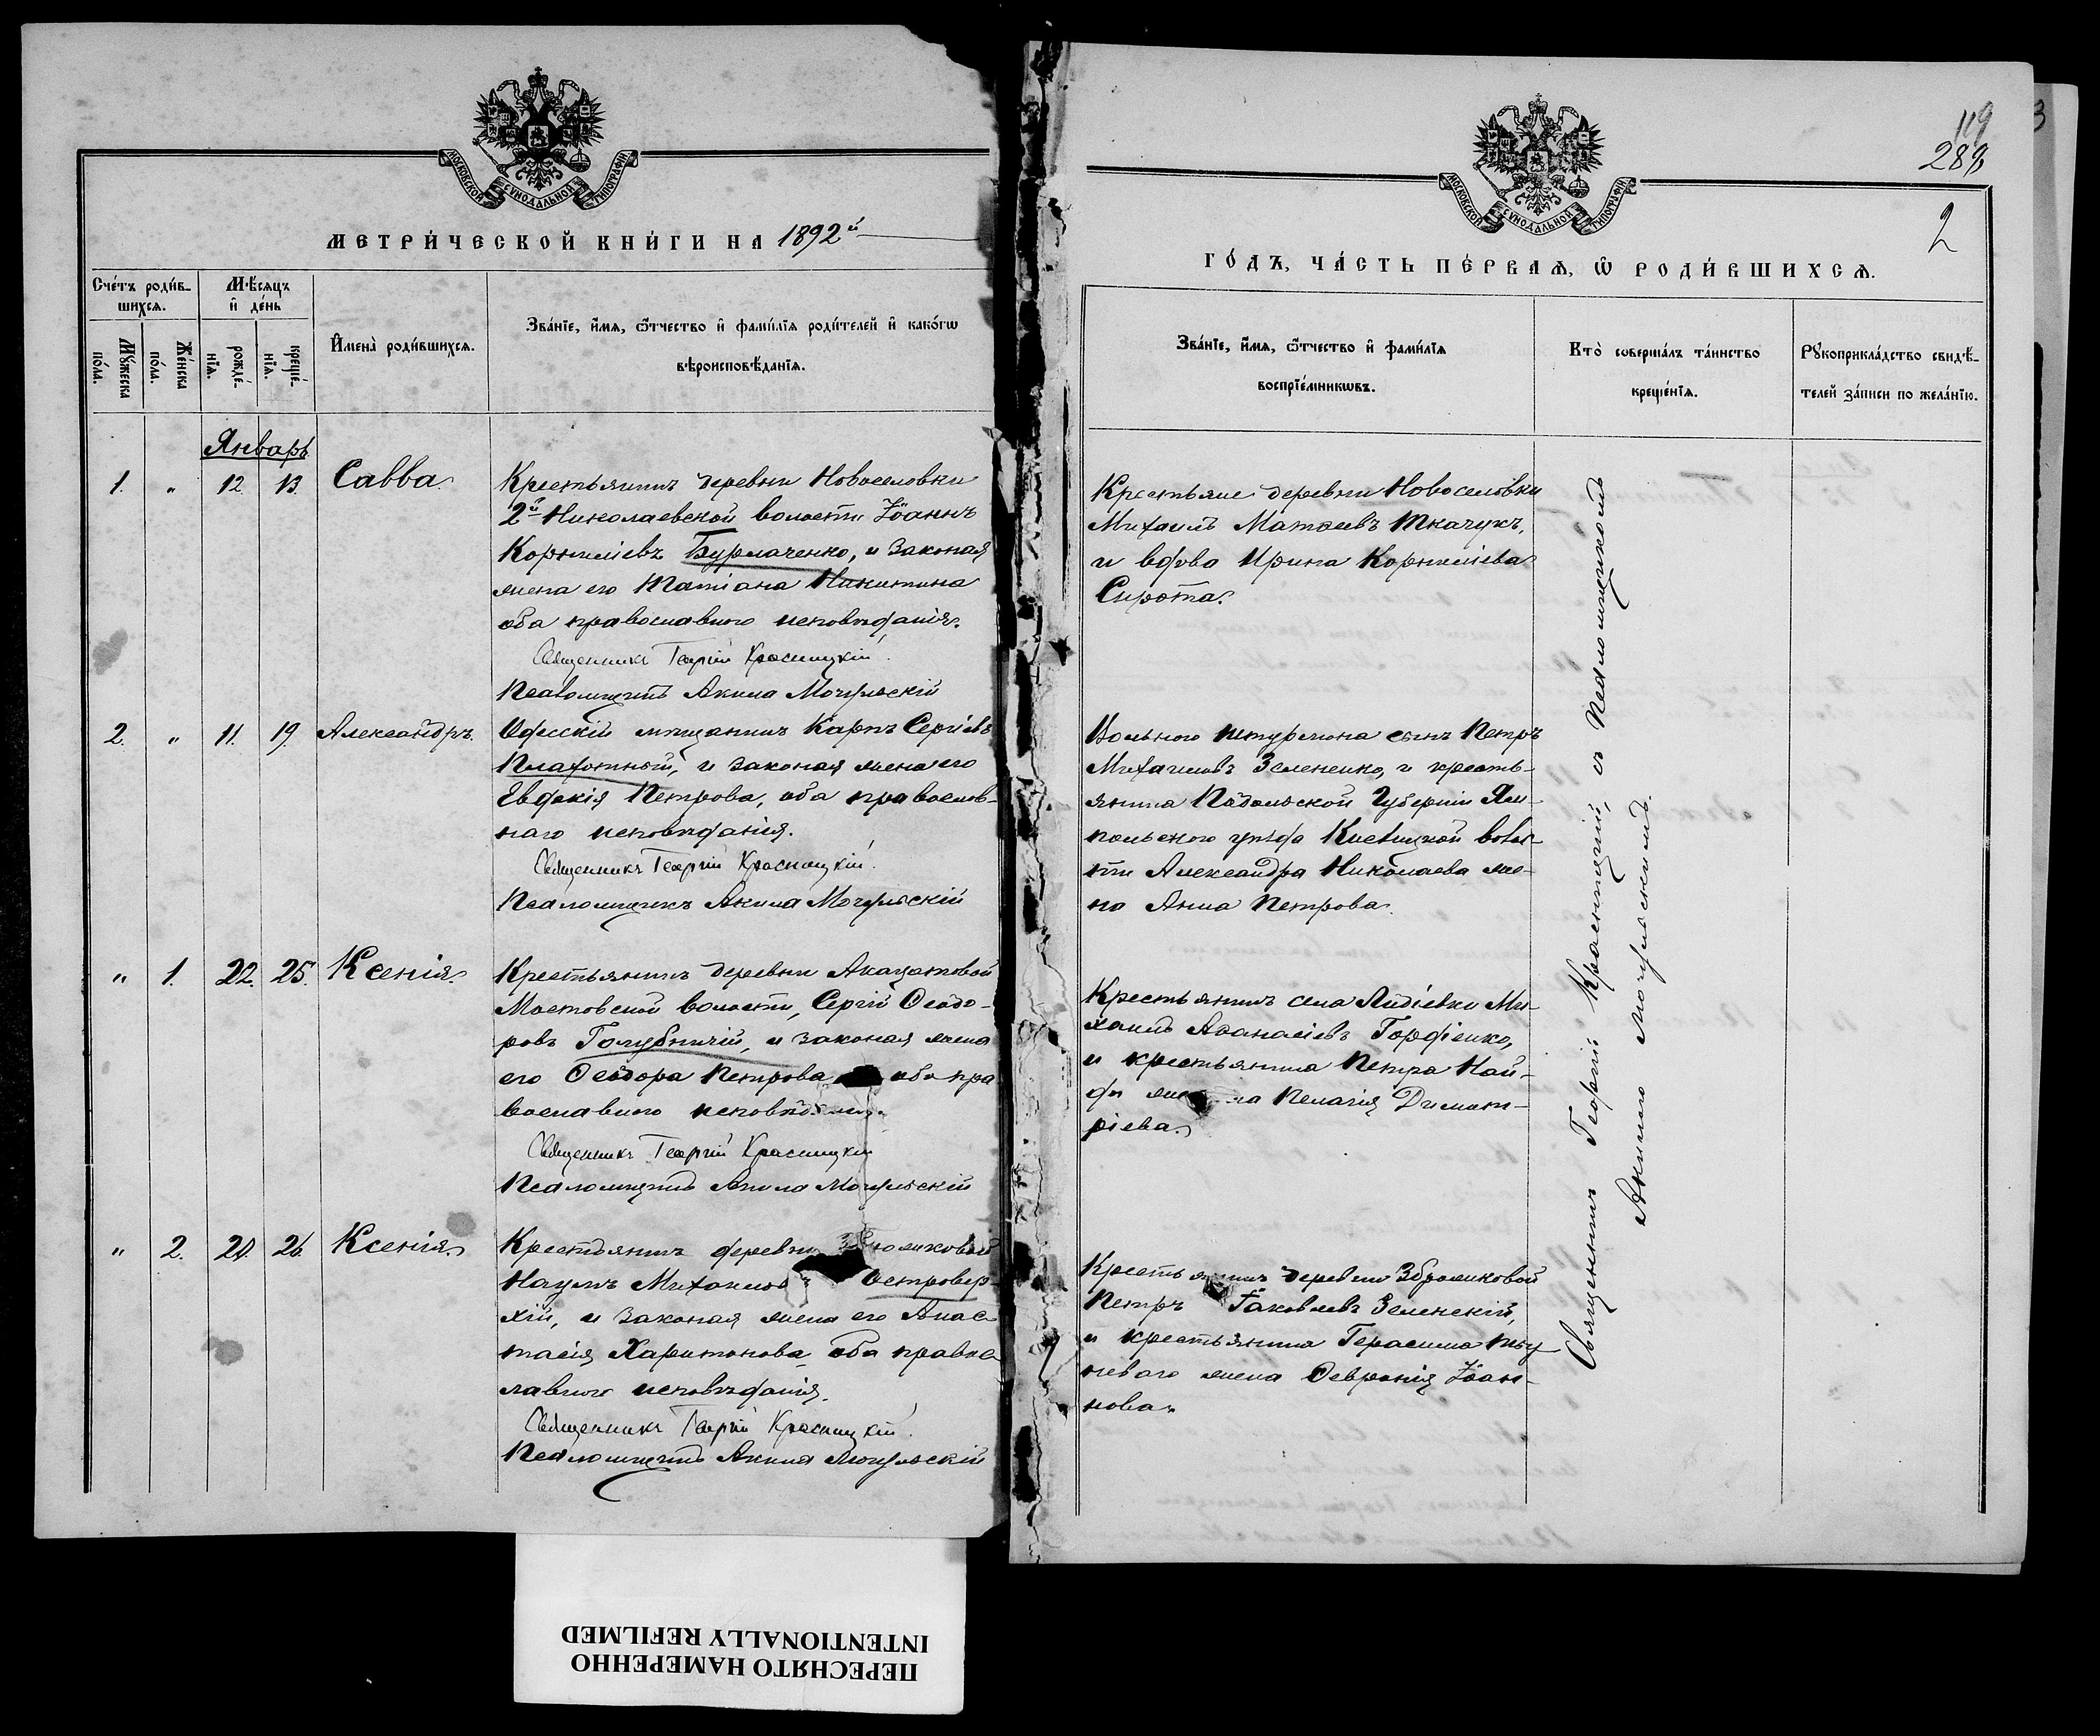 МОСКОВСКОЙ СѴНОДАЛЬНОЙ ТИПОГРАФІИ
МЕТРИ́ЧЕСКОЙ КНИ́ГИ НА 1892й
Сче́тъ роди́в-
шихсѧ.
Мꙋ́жеска
по́ла.
Же́нска
по́ла.
М́ѣсѧцъ
и҆ де́нь
рожде́-
нїѧ.
креще́-
нїѧ.
И҆мена̀ роди́вшихсѧ.
Зва́нїе, и҆́мѧ, ѻ҆́тчество и҆ фами́лїѧ роди́телей и҆ како́гѡ
вѣроисповѣ́данїѧ.
Январь
1. " 12. 13. Савва.
Крестьянинъ деревни Новоселовки
2й Николаевской волости Іоаннъ
Корниліевъ Бурлаченко, и законая
жена его Татіана Никитина
оба православнаго исповѣданія.
Священникъ Георгій Красницкій.
Псаломщикъ Акила Могульскій
2. " 11. 19. Александръ.
Одесскій мѣщанинъ Карпъ Сергіевъ
Плахотный, и законая жена его
Евдокія Петрова, оба православ-
наго исповѣданія.
Священникъ Георгій Красницкій.
Псаломщикъ Акила Могульскій
" 1. 22. 25. Ксенія.
Крестьянинъ деревни Акацатовой
Мостовской волости, Сергій Ѳеодо-
ровъ Голубничій, и законая жена
его Ѳеодора Петрова оба пра
вославного
Священникъ Георгій Красницкій
Псаломщикъ Акила Могульскій
" 2. 24. 26. Ксенія.
Крестьянинъ деревни
Наумъ Михаиловъ Островер-
хій, и законая жена его Анас-
тасія Харитонова оба правос
лавного исповѣданія.
Священникъ Георгій Красницкій.
Псаломщикъ Акила Могульскій
119
288
2
3
МОСКОВСКОЙ СѴНОДАЛЬНОЙ ТИПОГРАФІИ
ГО́ДЪ, ЧА́СТЬ ПЕ́РВАѦ, Ѽ РОДИ́ВШИХСѦ.
Зва́нїе, и҆́мѧ, ѻ҆́тчество и҆ фами́лїѧ
воспрїе́мникѡвъ.
Кто̀ соверша́лъ та́инство
креще́нїѧ.
Рꙋкоприкла́дство свидѣ́-
телей за́писи по жела́нїю.
Крестьяне деревни Новоселовки
Михаилъ Матѳеевъ Ткачукъ,
и вдова Ирина Корниліева
Сирота.
Вольного штурмона сынъ Петръ
Михаиловъ Зелененко, и кресть-
янина Подольской Губерніи Ям-
польского уѣзда волос-
ти Александра Николаева же-
на Анна Петрова.
Крестьянинъ села Лидіевки Ми-
хаилъ Аѳанасіевъ Гордіенко,
и крестьянина Петра Най-
ды Пелагія Димит-
ріева.
Крестьянинъ деревни Збрамковой
Петръ Іаковлевъ Зеленскій,
и крестьянина Герасима
жена Ѳевронія Іоан-
нова.
Священникъ Георгій Красницкій, съ Псаломщикомъ
Акилою Могульскимъ.
ПЕРЕСНЯТО НАМЕРЕННО
INTENTIONALLY REFILMED